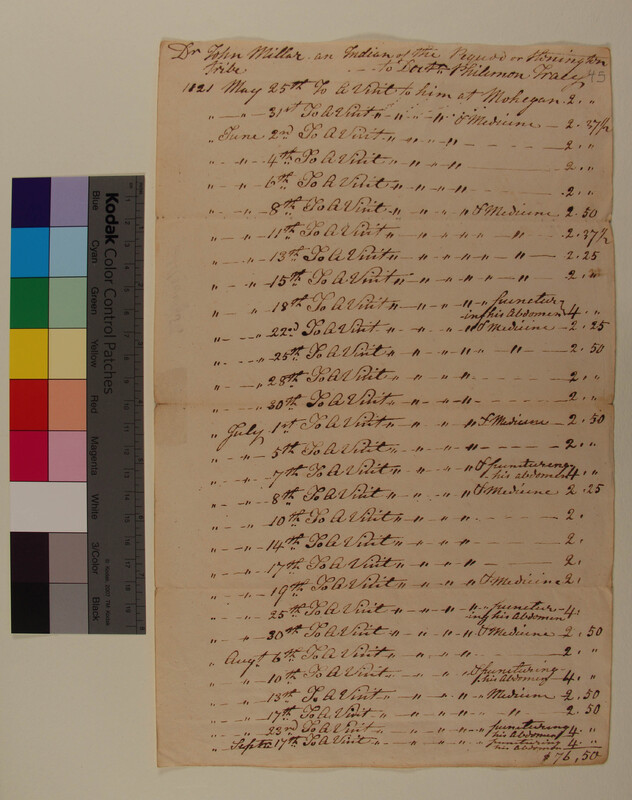 Dr John Millar an Indian of the Pequod or Stonington
tribe to Doctr. Philemon Tracy 45
1821 May 25th To A Visit to him at Mohegan 2. "
" — " — 31st To A Visit " — " — " — " & Medicine — 2.37 1/2
" June 2nd To A Visit " — " — " — " 2. "
" — " — 4th To A Visit " — " — " — " 2. "
" — " — 6th To A Visit " — " — " — " 2. "
" — " — 8th To A Visit " — " — " — " & Medicine 2.50
" — " — 11th To A Visit " — " — " — " — " 2.37 1/2
" — " — 13th To A Visit " — " — " — " — " 2.25
" — " — 15th To A Visit " — " — " — " — " 2. "
" — " — 18th To A Visit " — " — " — " & punctur-
ing his Abdomen 4. "
" — " — 22nd To A Visit " — " — " — " & Medicine — 2.25
" — " — 25th To A Visit " — " — " — " — " — 2.50
" — " — 28th To A Visit " — " — " — " 2. "
" — " — 30th To A Visit " — " — " — " 2. "
" July 1st To A Visit " — " — " — " & Medicine — 2.50
" — " — 5th To A Visit " — " — " — " 2. "
" — " — 7th To A Visit " — " — " — " & puncturing
his abdomen 4. "
" — " — 8th To A Visit " — " — " — " & Medicine 2.25
" — " — 10th To A Visit " — " — " — " 2.
" — " — 14th To A Visit " — " — " — " 2.
" — " — 17th To A Visit " — " — " — " 2.
" — " — 19th To A Visit " — " — " — " & Medicine 2.
" — " — 25th To A Visit " — " — " — " punctur-
ing his Abdomen 4.
" — " — 30th To A Visit " — " — " — " & Medicine — 2.50
" Augt 6th To A Visit " — " — " — " 2. "
" — " — 10th To A Visit " — " — " — " & puncturing
his Abdomen 4. "
" — " — 13th To A Visit " — " — " — " Medicine 2.50
" — " — 17th To A Visit " — " — " — " — " 2.50
" — " — 23rd To A Visit " — " — " — " puncturing
his Abdomen 4. "
" Septr. 17th To A Visit " — " — " — " puncturing
his Abdomen 4. "
$76,50
Kodak Color Control Patches
Blue Cyan Green Yellow Red Magenta White 3/Color Black